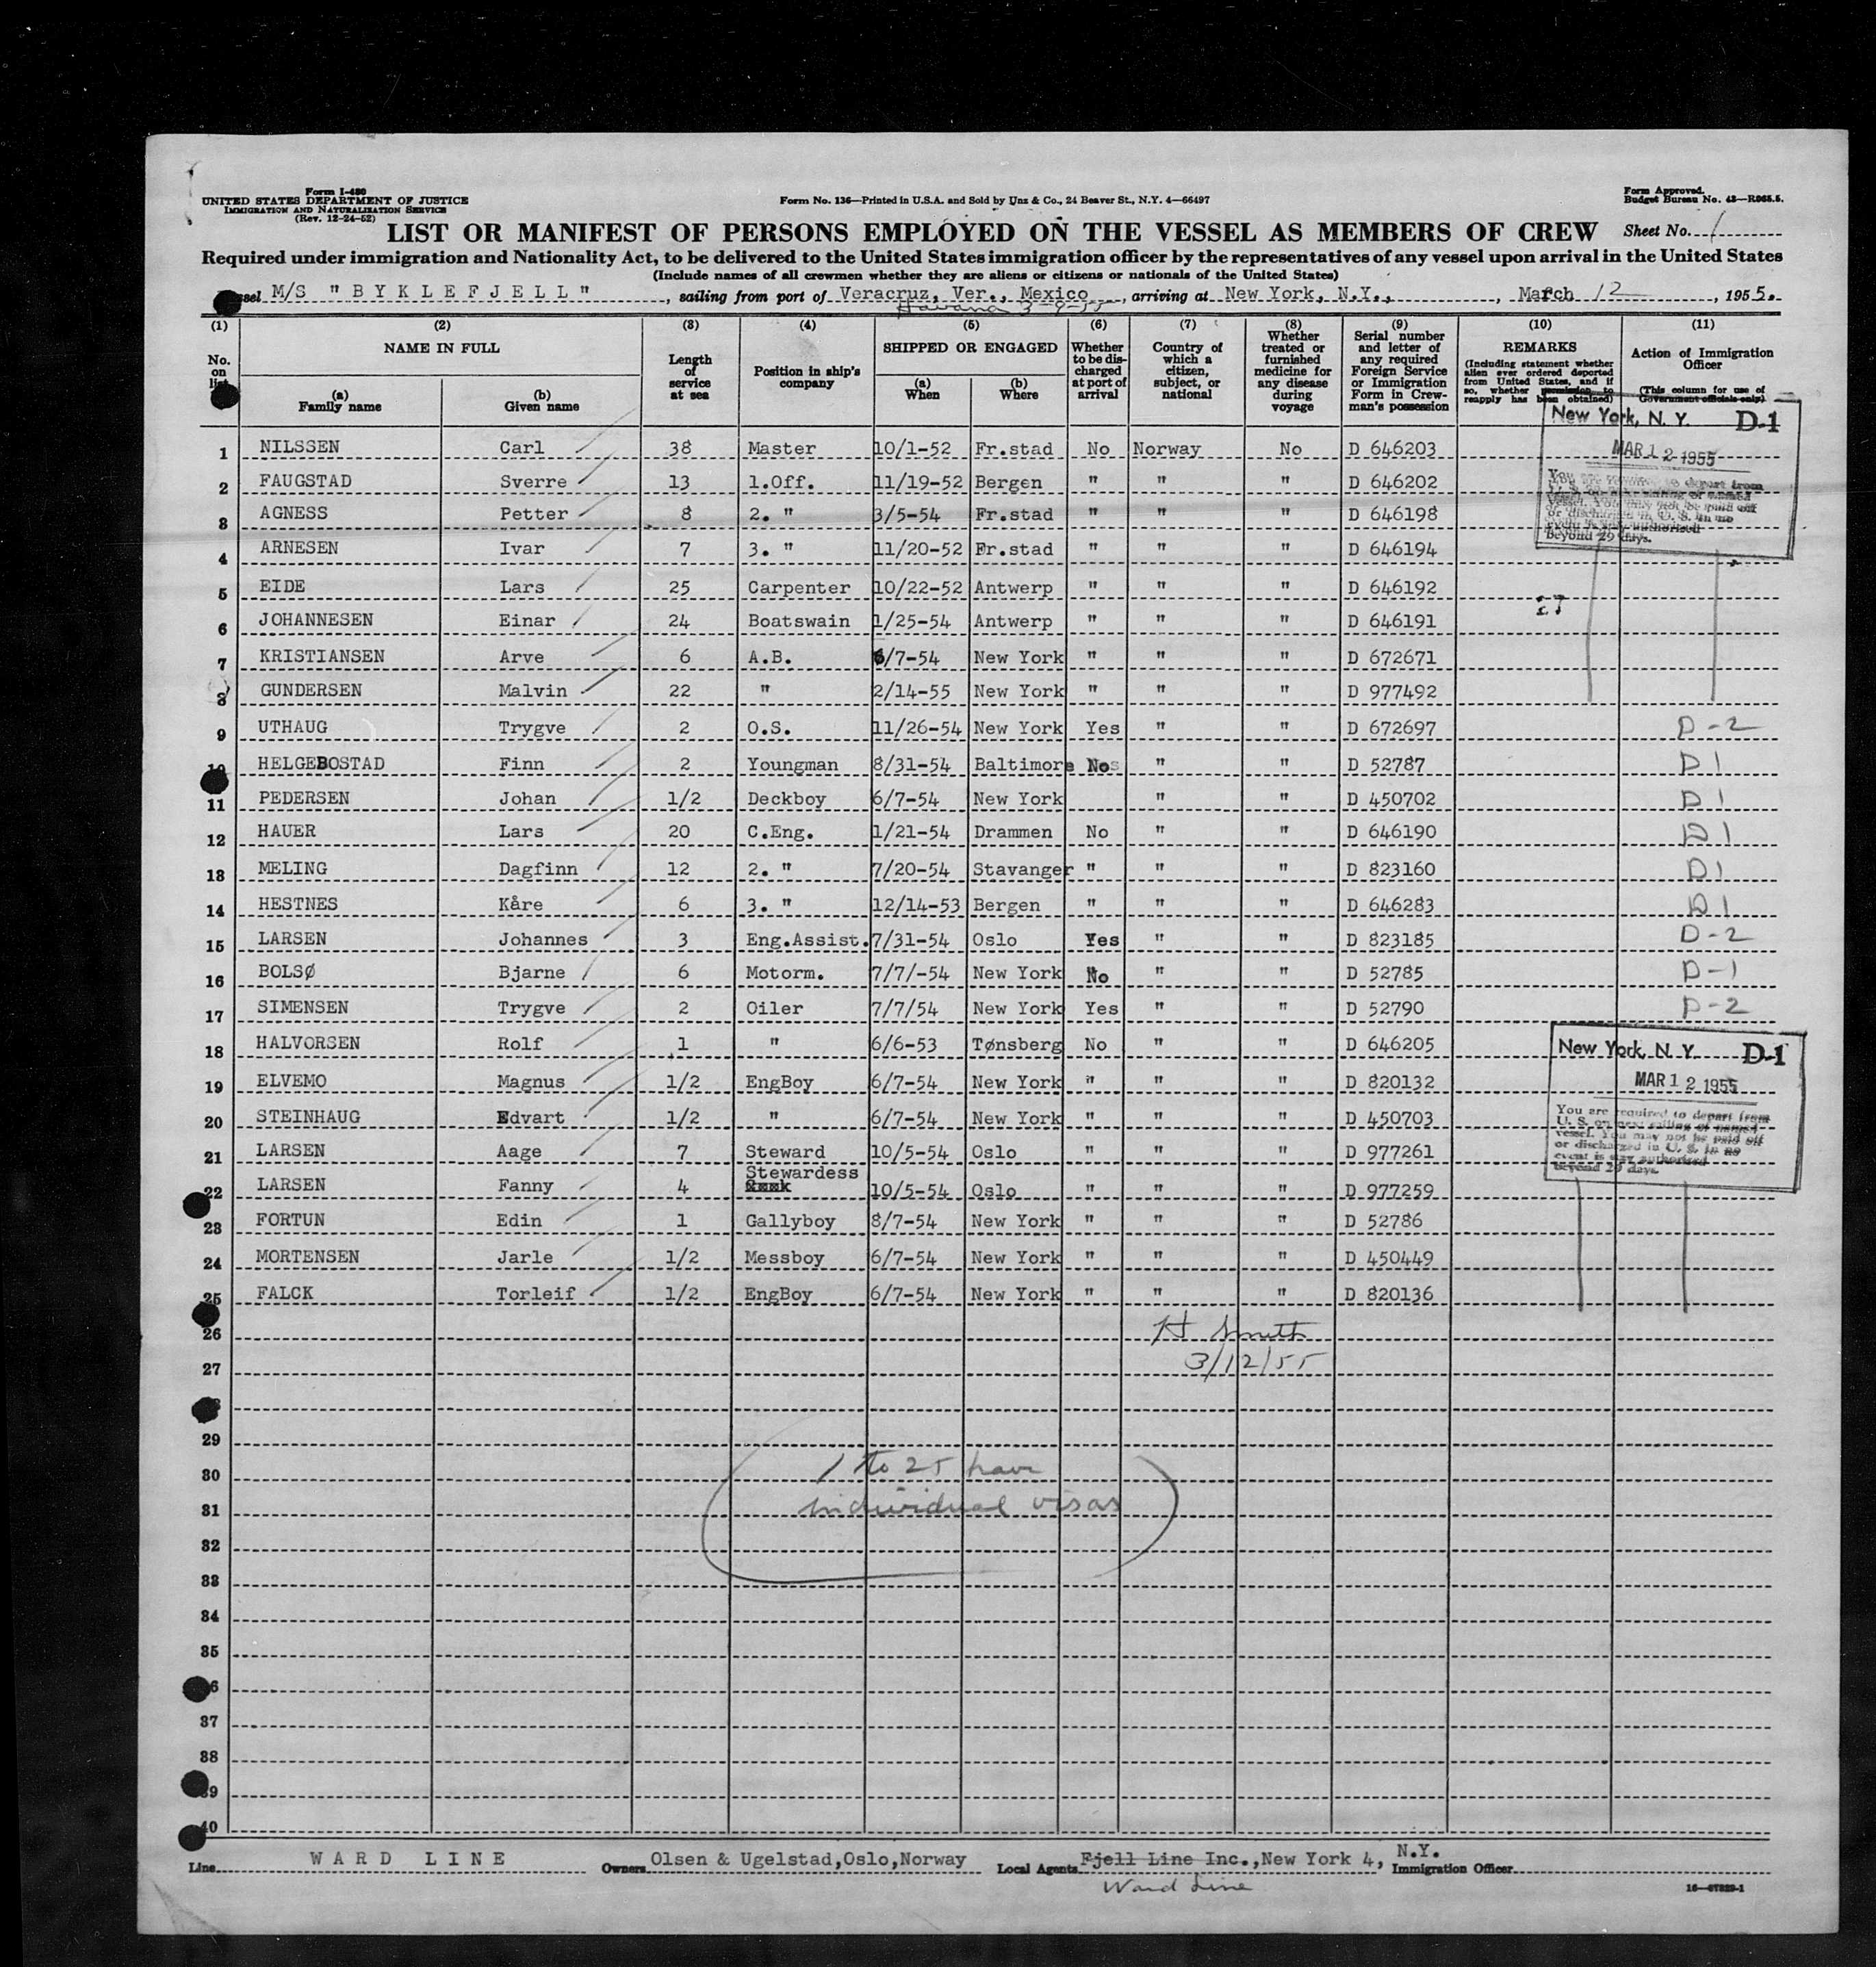 Form I-480
UNITED STATES DEPARTMENT OF JUSTICE
IMMIGRATION AND NATURALIZATION SERVICE
(Rev. 12-24-52)
Form No. 136—Printed in U.S.A. and Sold by Unz & Co., 24 Beaver St., N.Y. 4—66497
Form Approved.
Budget Bureau No. 43—R065.5.
LIST OR MANIFEST OF PERSONS EMPLOYED ON THE VESSEL AS MEMBERS OF CREW Sheet No. 1
Required under immigration and Nationality Act, to be delivered to the United States immigration officer by the representatives of any vessel upon arrival in the United States
(Include names of all crewmen whether they are aliens or citizens or nationals of the United States)
ssel M/S "BYKLEFJELL", sailing from port of Veracruz, Ver., Mexico, arriving at New York, N.Y., March 12, 1955.
Havana 3-9-55
(1) (2) (3) (4) (5) (6) (7) (8) (9) (10) (11)
No. on list
NAME IN FULL
(a) Family name
(b) Given name
Length of service at sea
Position in ship's company
SHIPPED OR ENGAGED
(a) When
(b) Where
Whether to be discharged at port of arrival
Country of which a citizen, subject, or national
Whether treated or furnished medicine for any disease during voyage
Serial number and letter of any required Foreign Service or Immigration Form in Crewman's possession
REMARKS
(Including statement whether alien ever ordered deported from United States, and if so, whether permission to reapply has been obtained)
Action of Immigration Officer
(This column for use of Government officials only)
New York, N. Y. D-1
MAR 12 1955
You are required to depart from
U. S. on next sailing of named
vessel. You may not be paid off
or discharged in U. S. in no
event is stay authorized
beyond 29 days.
1 NILSSEN Carl 38 Master 10/1-52 Fr.stad No Norway No D 646203
2 FAUGSTAD Sverre 13 1.Off. 11/19-52 Bergen " " " D 646202
3 AGNESS Petter 8 2. " 3/5-54 Fr.stad " " " D 646198
4 ARNESEN Ivar 7 3. " 11/20-52 Fr.stad " " " D 646194
5 EIDE Lars 25 Carpenter 10/22-52 Antwerp " " " D 646192
6 JOHANNESEN Einar 24 Boatswain 1/25-54 Antwerp " " " D 646191
7 KRISTIANSEN Arve 6 A.B. 6/7-54 New York " " " D 672671
8 GUNDERSEN Malvin 22 " 2/14-55 New York " " " D 977492
9 UTHAUG Trygve 2 O.S. 11/26-54 New York Yes " " D 672697 D-2
10 HELGEBOSTAD Finn 2 Youngman 8/31-54 Baltimore No " " D 52787 D1
11 PEDERSEN Johan 1/2 Deckboy 6/7-54 New York " " D 450702 D1
12 HAUER Lars 20 C.Eng. 1/21-54 Drammen No " " D 646190 D1
13 MELING Dagfinn 12 2. " 7/20-54 Stavanger " " " D 823160 D1
14 HESTNES Kåre 6 3. " 12/14-53 Bergen " " " D 646283 D1
15 LARSEN Johannes 3 Eng.Assist. 7/31-54 Oslo Yes " " D 823185 D-2
16 BOLSØ Bjarne 6 Motorm. 7/7/-54 New York No " " D 52785 D-1
17 SIMENSEN Trygve 2 Oiler 7/7/54 New York Yes " " D 52790 D-2
18 HALVORSEN Rolf 1 " 6/6-53 Tønsberg No " " D 646205
19 ELVEMO Magnus 1/2 EngBoy 6/7-54 New York " " " D 820132
20 STEINHAUG Edvart 1/2 " 6/7-54 New York " " " D 450703
21 LARSEN Aage 7 Steward 10/5-54 Oslo " " " D 977261
22 LARSEN Fanny 4 Stewardess 10/5-54 Oslo " " " D 977259
23 FORTUN Edin 1 Gallyboy 8/7-54 New York " " " D 52786
24 MORTENSEN Jarle 1/2 Messboy 6/7-54 New York " " " D 450449
25 FALCK Torleif 1/2 EngBoy 6/7-54 New York " " " D 820136
New York, N. Y. D-1
MAR 12 1955
You are required to depart from
U. S. on next sailing of named
vessel. You may not be paid off
or discharged in U. S. in no
event is stay authorized
beyond 29 days.
26
H Smith
27
3/12/55
29
30
1 to 25 have
31
individual visas
32
33
34
35
36
37
38
39
40
Line WARD LINE Owners Olsen & Ugelstad, Oslo, Norway Local Agents Fjell Line Inc., New York 4, N.Y. Immigration Officer
Ward Line
16—67829-1